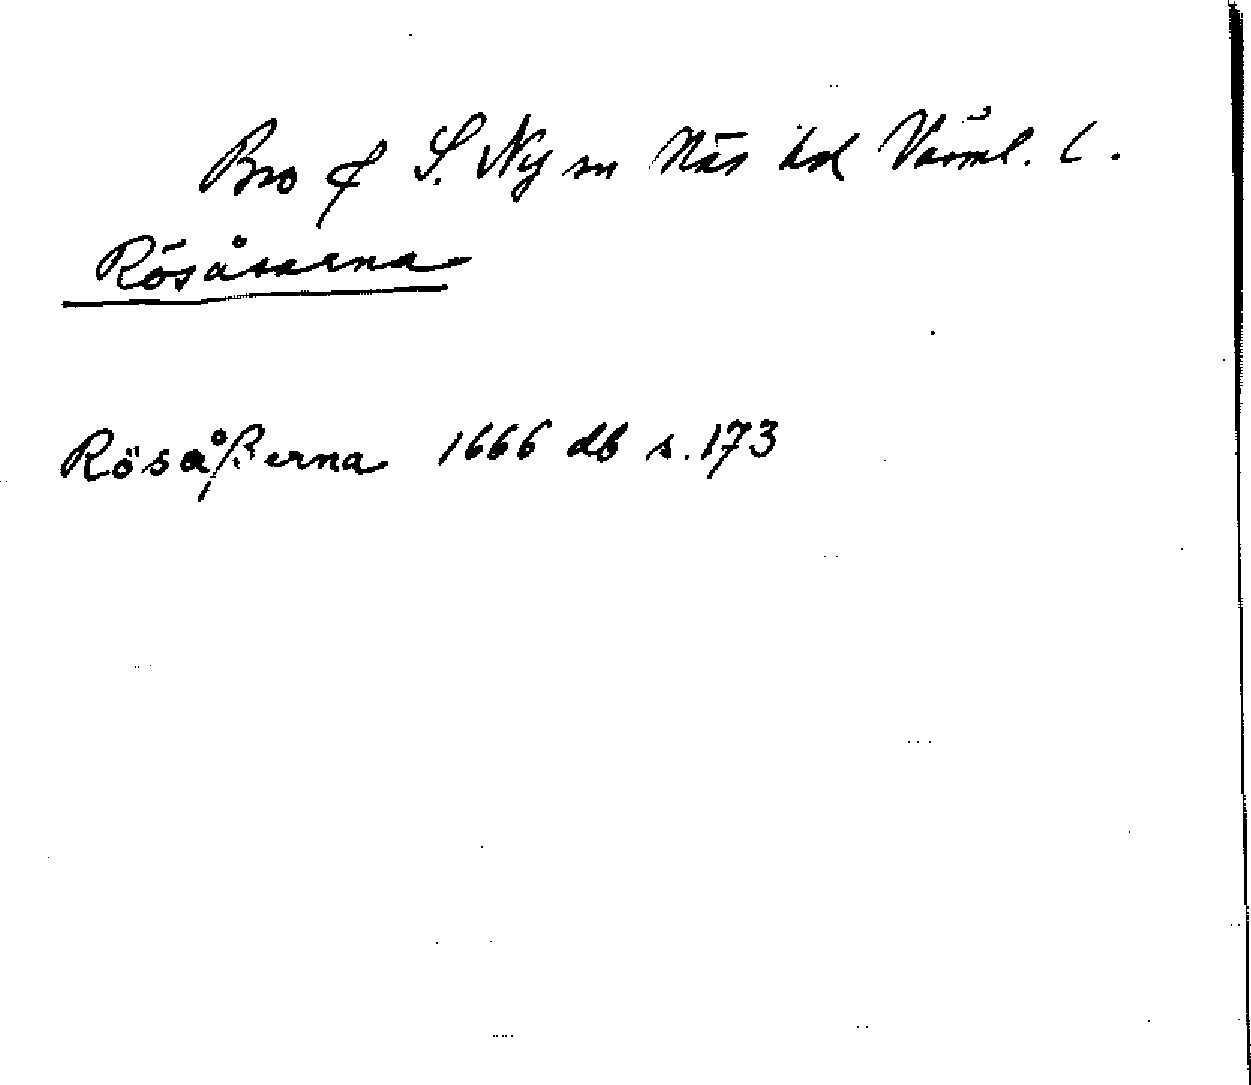 Bro f S. Ny sn Näs hd Värml. l.
Rösåsarna
Rösåßerna 1666 db s. 173